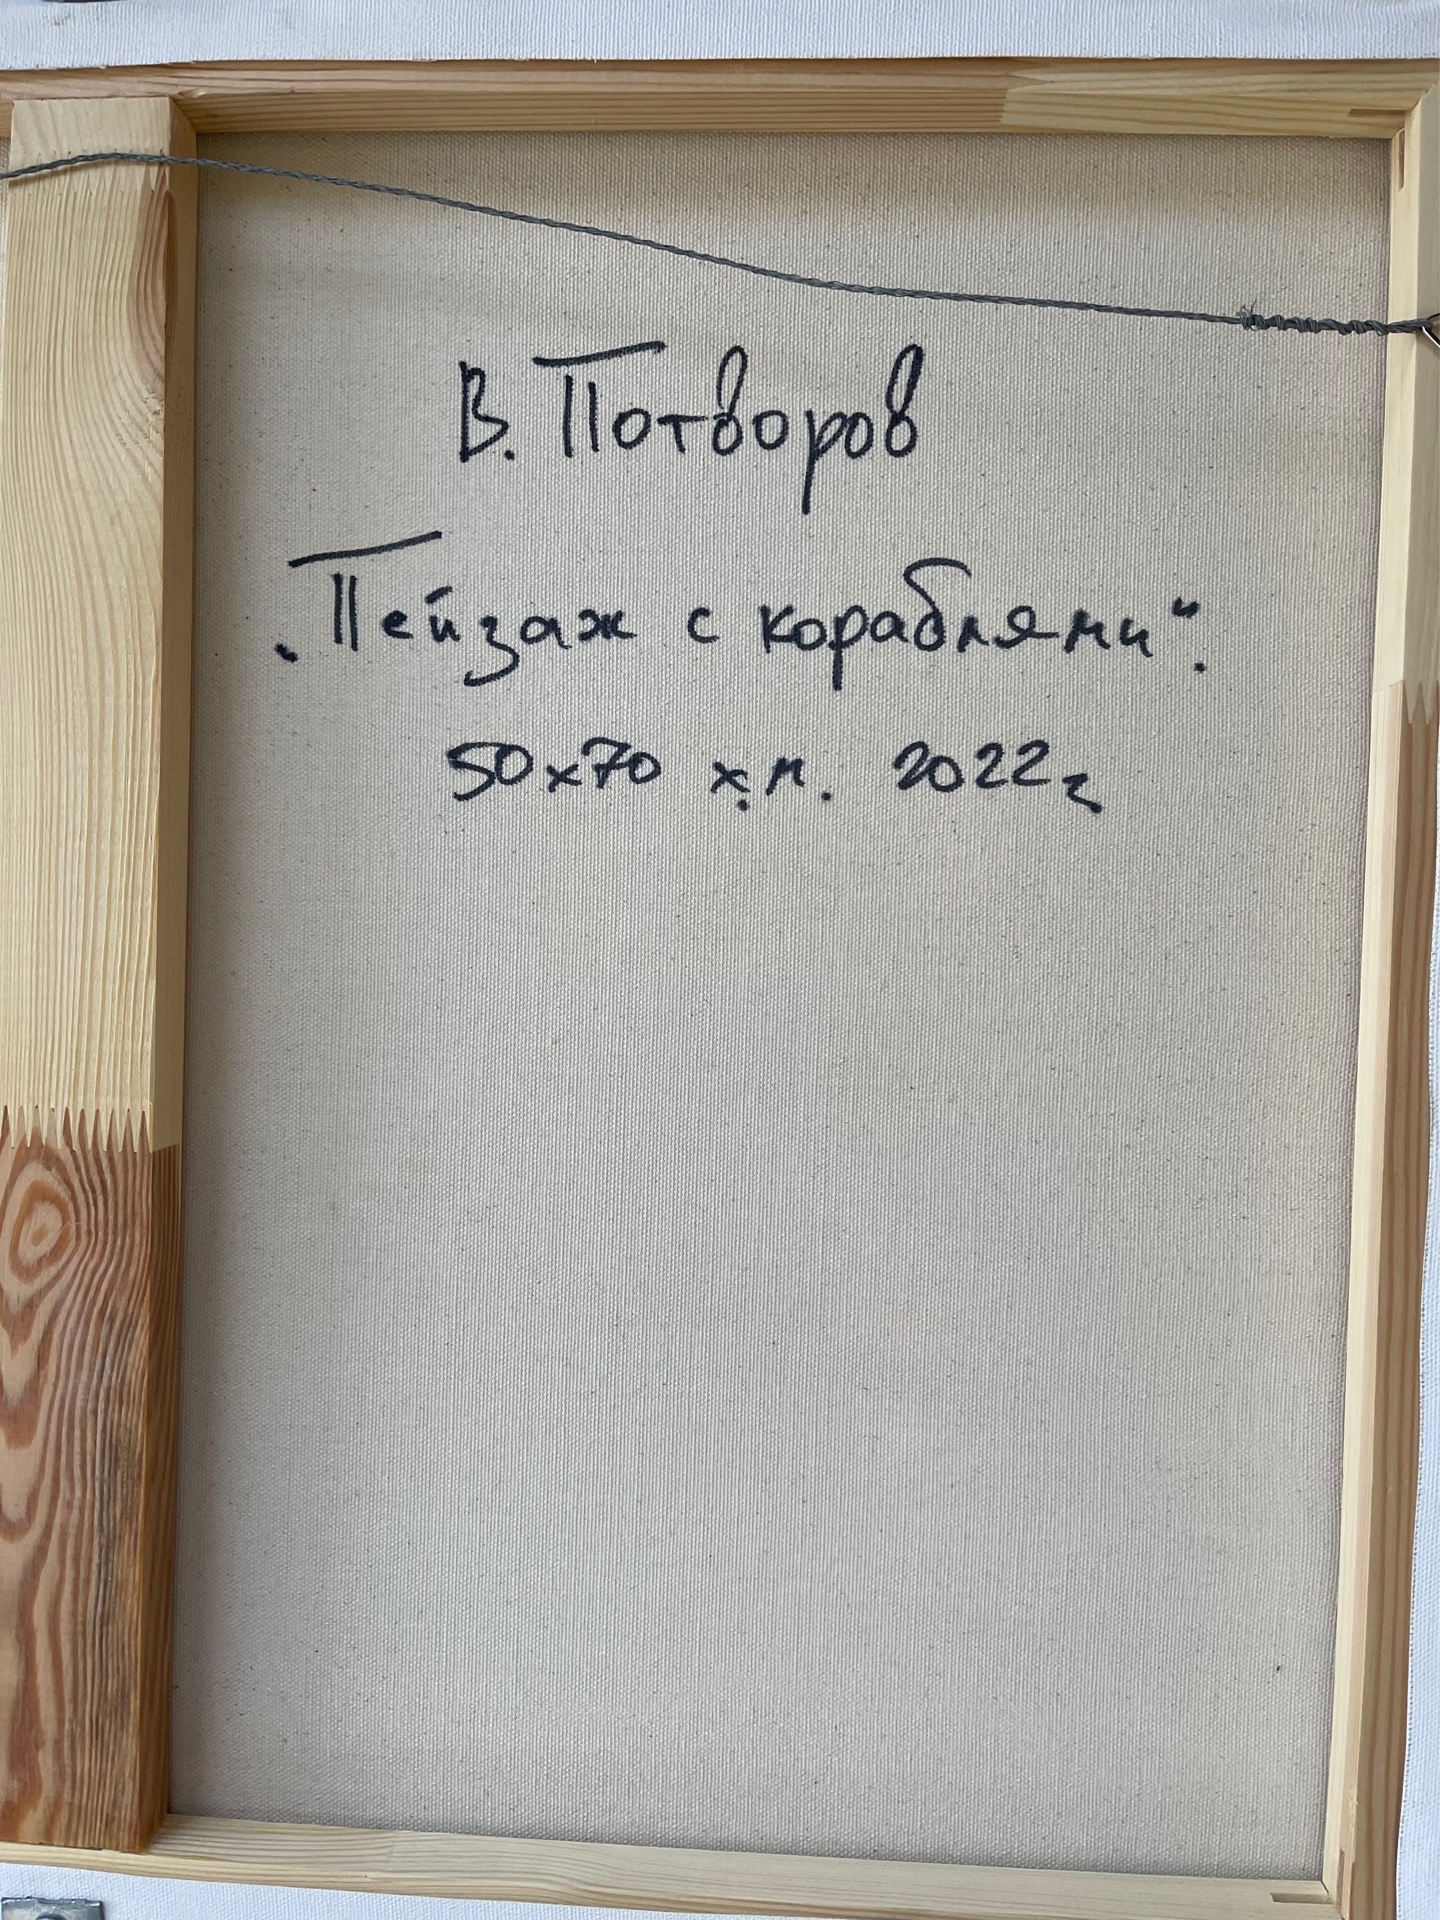 В. Потворов
„Пейзаж с кораблями“.
50х70 х.м. 2022г